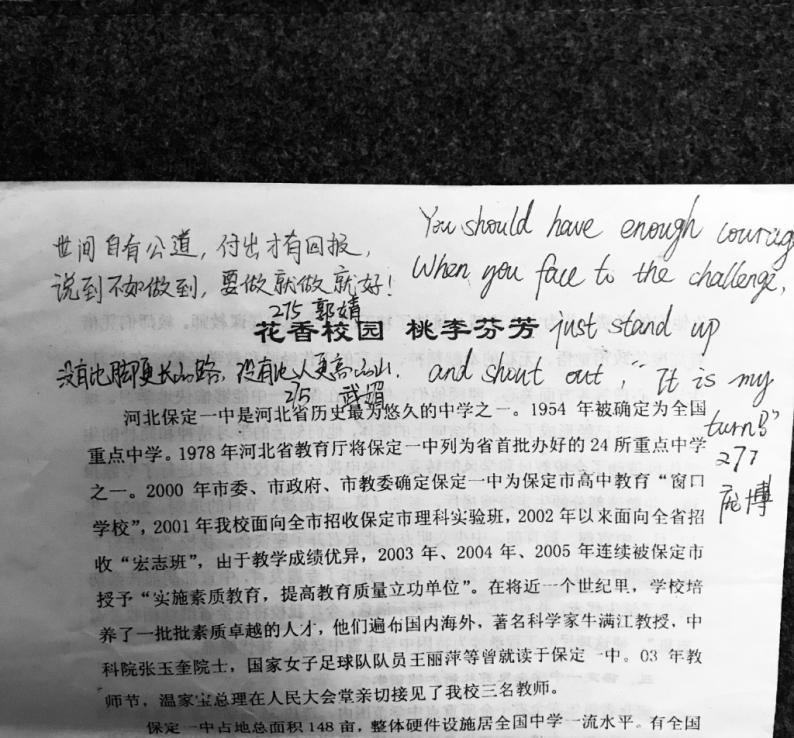 世间自有公道，付出才有回报，
说到不如做到，要做就做就好！
275 郭婧
You should have enough courag
When you face to the challenge,
just stand up
and shout out, "It is my
turn!"
277
庞博
花香校园 桃李芬芳
没有比脚更长的路，没有比人更高的山.
275 武媚
河北保定一中是河北省历史最为悠久的中学之一。1954 年被确定为全国
重点中学。1978 年河北省教育厅将保定一中列为省首批办好的 24 所重点中学
之一。2000 年市委、市政府、市教委确定保定一中为保定市高中教育“窗口
学校”，2001 年我校面向全市招收保定市理科实验班，2002 年以来面向全省招
收“宏志班”，由于教学成绩优异，2003 年、2004 年、2005 年连续被保定市
授予“实施素质教育，提高教育质量立功单位”。在将近一个世纪里，学校培
养了一批批素质卓越的人才，他们遍布国内海外，著名科学家牛满江教授，中
科院张玉奎院士，国家女子足球队队员王丽萍等曾就读于保定一中。03 年教
师节，温家宝总理在人民大会堂亲切接见了我校三名教师。
保定一中占地总面积 148 亩，整体硬件设施居全国中学一流水平。有全国